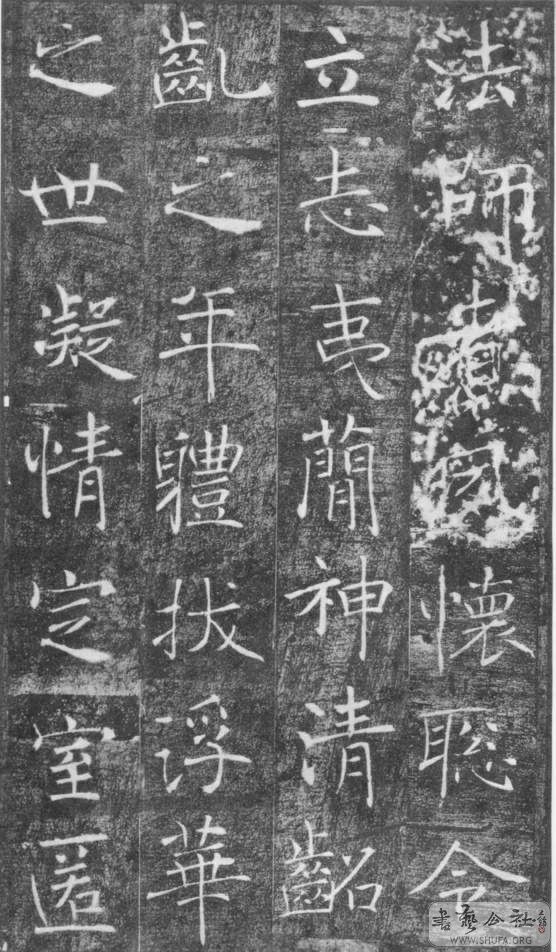 法師者夙懷聰令
立志夷簡神清齠
齔之年軆拔浮華
之世凝情定室匿
書藝公社
WWW.SHUFA.ORG